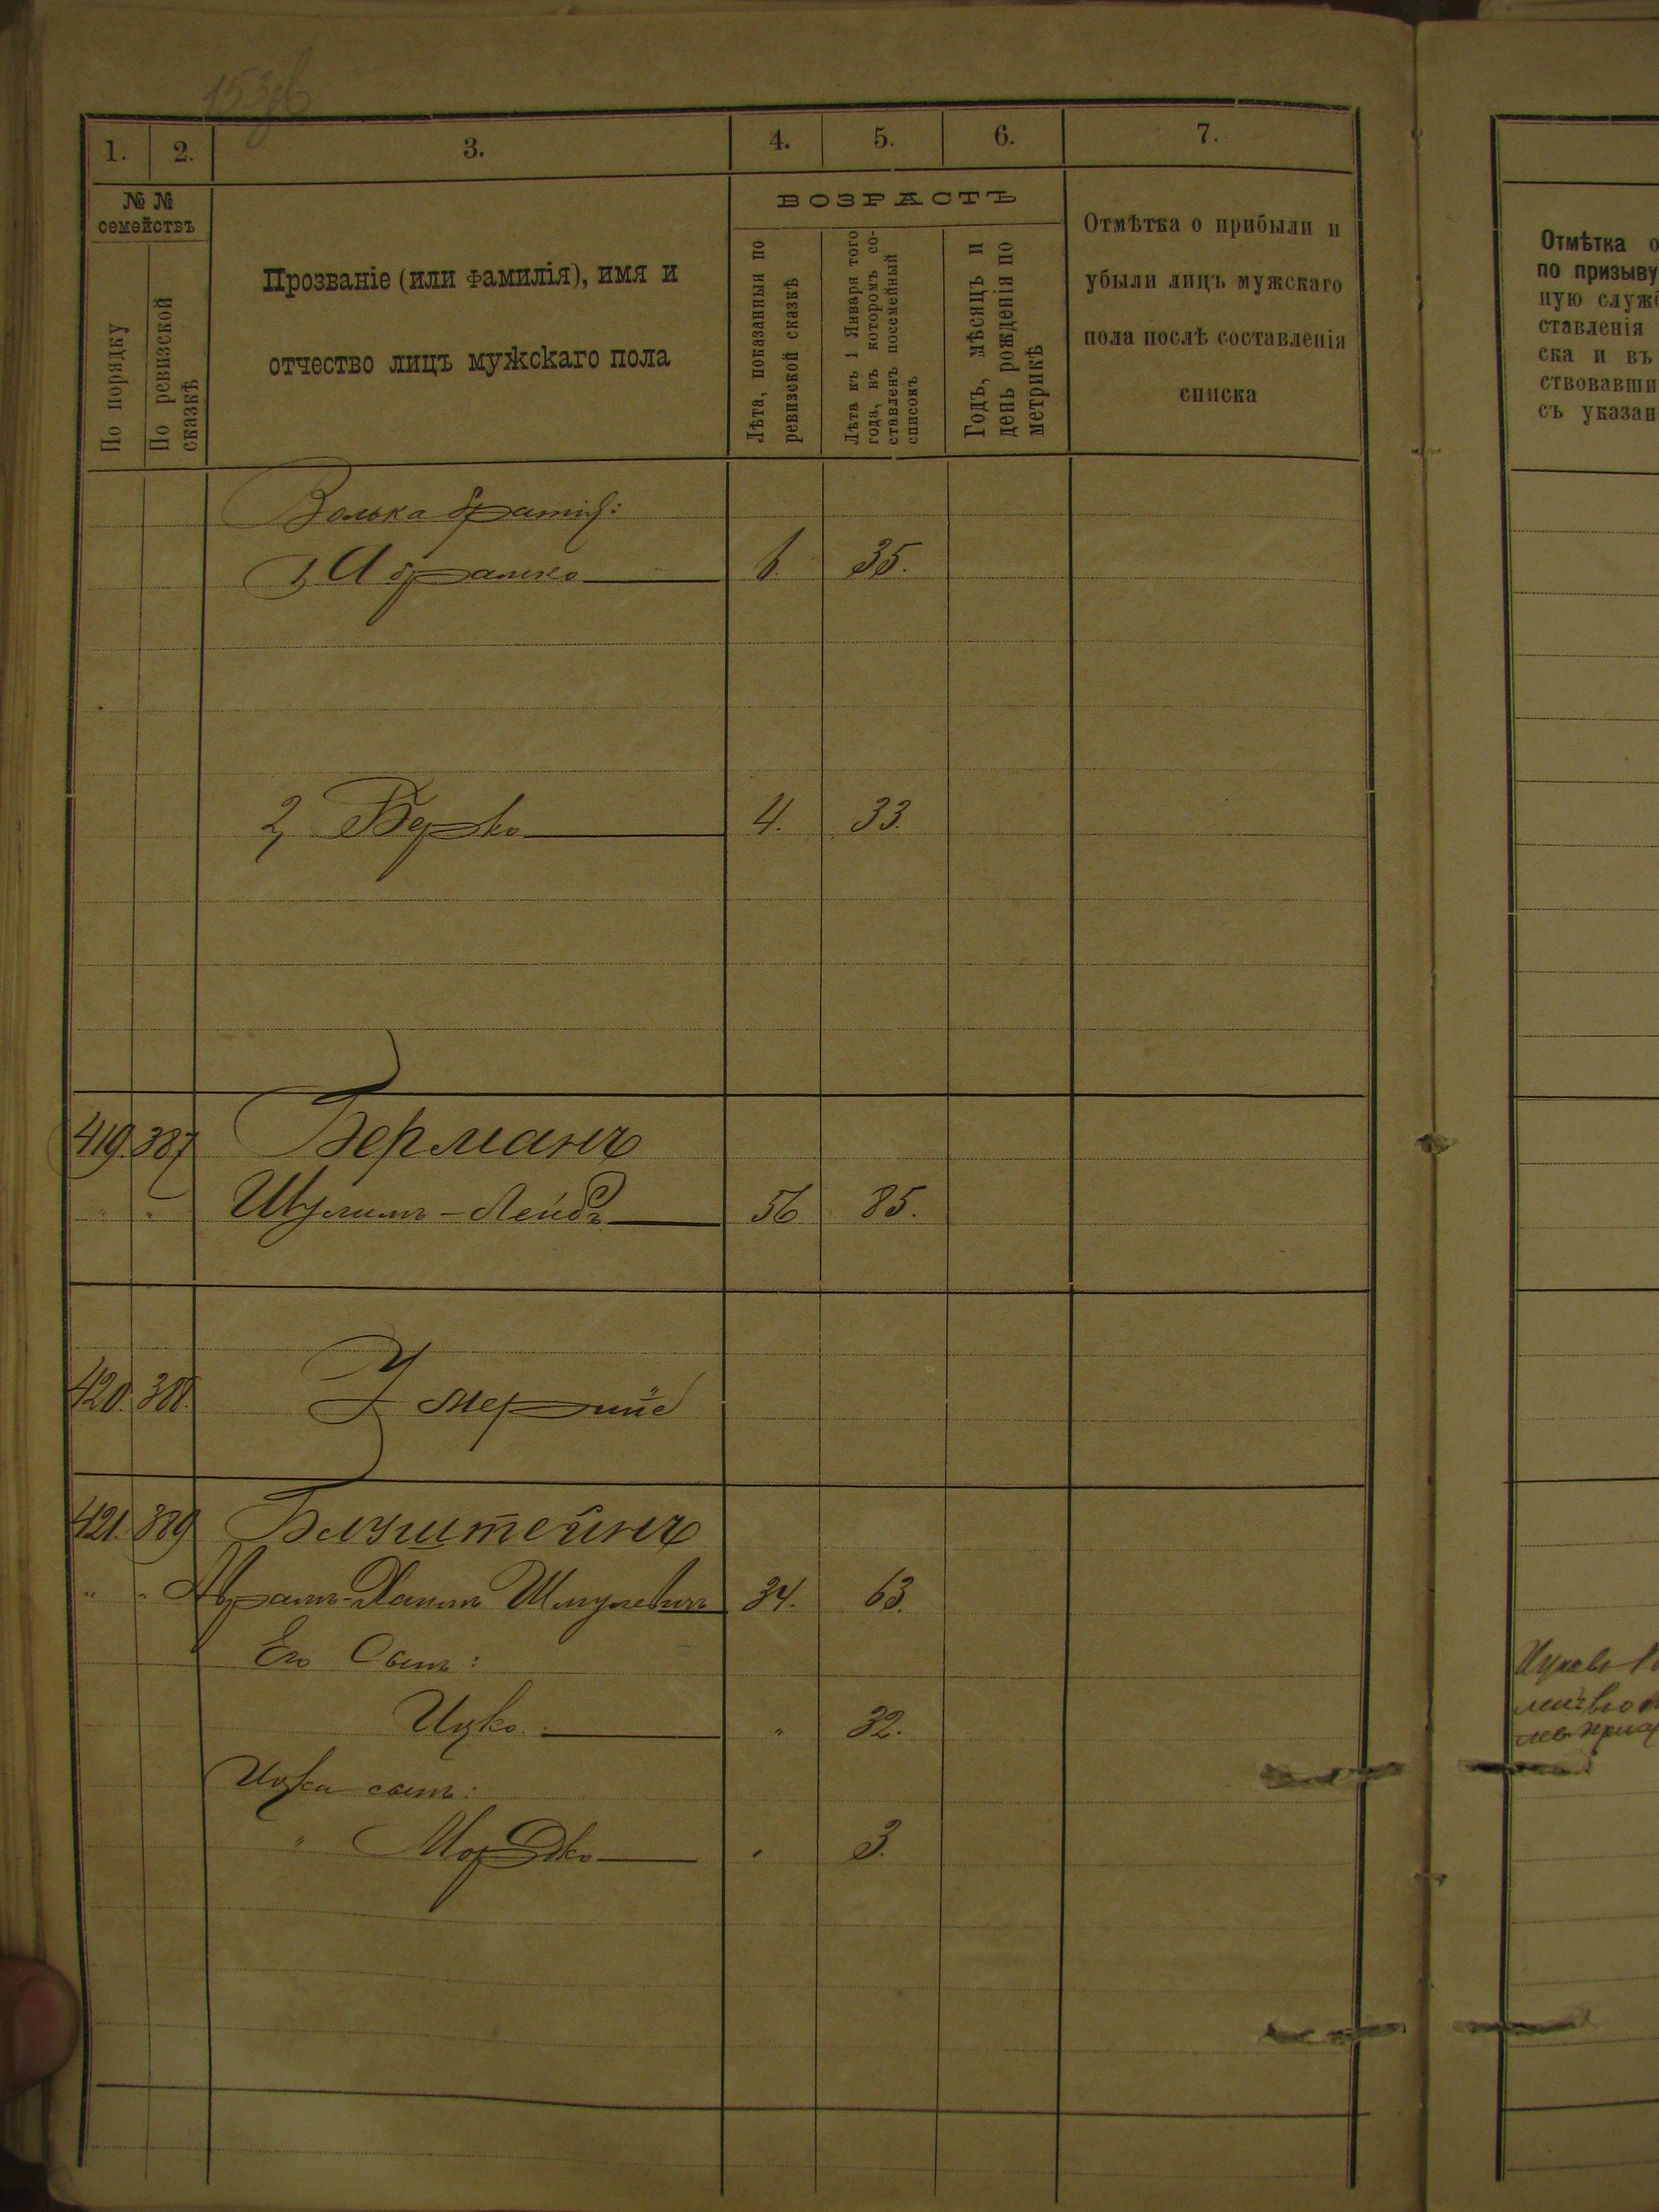 153об
1. 2. 3. 4. 5. 6. 7.
№ №
семействъ
По порядку
По ревизской
сказкѣ
Прозваніе (или фамилія), имя и
отчество лицъ мужскаго пола
ВОЗРАСТЪ
Лѣта, показанныя по
ревизской сказкѣ
Лѣта къ 1 Января того
года, въ которомъ со-
ставленъ посемейный
списокъ
Годъ, мѣсяцъ и
день рожденія по
метрикѣ
Отмѣтка о прибыли и
убыли лицъ мужскаго
пола послѣ составленія
списка
Волька братья:
1, Абрамко 6. 35.
2, Берко 4. 33.
419. 387 Берманъ
" " Шулимъ-Лейбъ 56 85.
420. 388. Умершіе
421. 389 Блуштейнъ
" " Абрамъ-Хаимъ Шмулевичъ 34. 63.
Его Сынъ:
Ицко " 32.
Ицка сынъ:
" Мордко " 3.
Отмѣтка о
по призыву
ную служб
ставленія
ска и въ
ствовавши
съ указан